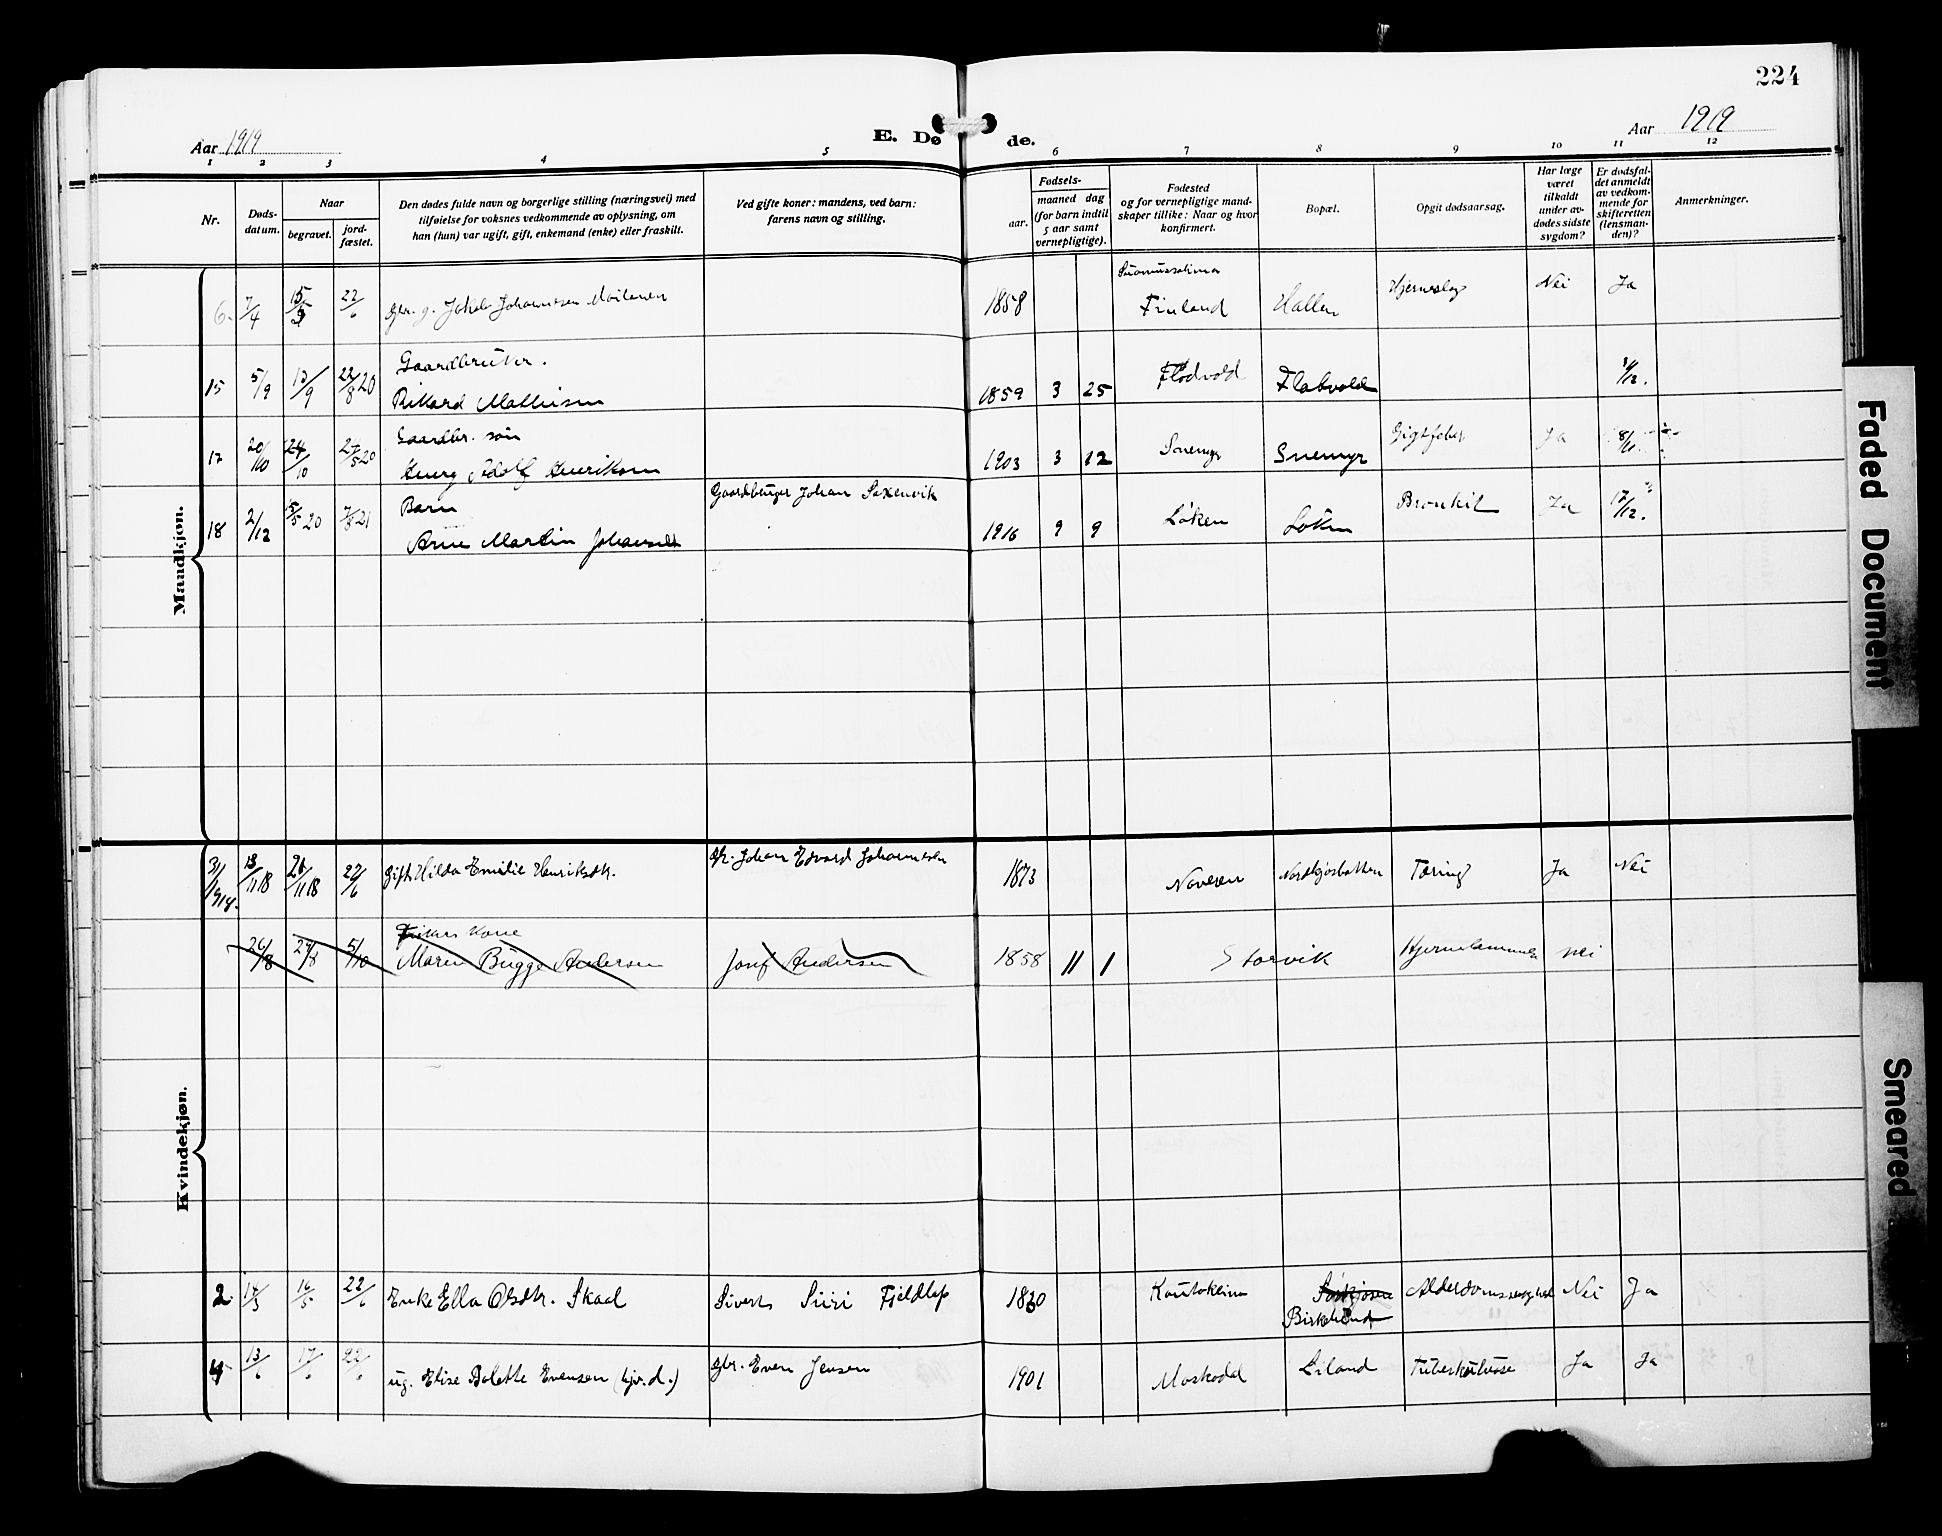 224
Aar 1919
E. Døde.
Aar 1919
1 2 3 4 5 6 7 8 9 10 11 12
Nr.
Døds-datum.
Naar
begravet.
jord-fæstet.
Den dødes fulde navn og borgerlige stilling (næringsvei) med
tilføielse for voksnes vedkommende av oplysning, om
han (hun) var ugift, gift, enkemand (enke) eller fraskilt.
Ved gifte koner: mandens, ved barn:
farens navn og stilling.
Fødsels-
aar.
maaned dag
(for barn indtil
5 aar samt
vernepligtige).
Fødested
og for vernepligtige mand-
skaper tillike: Naar og hvor
konfirmert.
Bopæl.
Opgit dødsaarsag.
Har læge
været
tilkaldt
under av-
dødes sidste
sygdom?
Er dødsfal-
det anmeldt
av vedkom-
mende for
skifteretten
(lensman-
den)?
Anmerkninger.
Mandkjøn.
6. 7/4 22/6 gbr. g. Jakob Johannesen 1858 Finland Hallen Hjerneslag Nei Ja
Gaardbruker.
15 5/9 12/9 22/8 20 Rikard Mathisen 1859 3 25 Flatvold
Gaardbr. søn
17 20/10 24/10 Adolf Henriksen 1903 3 12 Snemyr Snemyr Gigtfeber Ja 8/11
Barn Gaardbruger Johan Saxenvik
18 2/12 15/5 20 7/8 21 Arne Martin Johansen 1916 9 9 Løken Løken Bronkit Ja 17/12.
Kvindekjøn.
31/1918. 13/11 18 21/11 18 22/6 gift Hilda Emilie Henriksdtr. gbr. Johan Edvard Johannesen 1873 Naveren Nordkjosbotten Tæring Ja Nei
Fiskers Kone
26/8 29/8 5/10 Maren Bugge Andersen Josef Andersen 1858 11 1 Storvik nei
2. 14/5 16/5 22/6 Enke Ella Olsdtr. Skaal Siverts Siiri Fjeldlap 1830 Kautokeino Sørkjosen Birkelund Alderdomssvaghed Nei Ja
4 13/6 17/6 22/6 ug. Elise Bolette Evensen (hjv. d.) gbr. Even Jensen 1901 Moskodal Liland Tuberkulose Ja Ja
Faded Document
Smeared